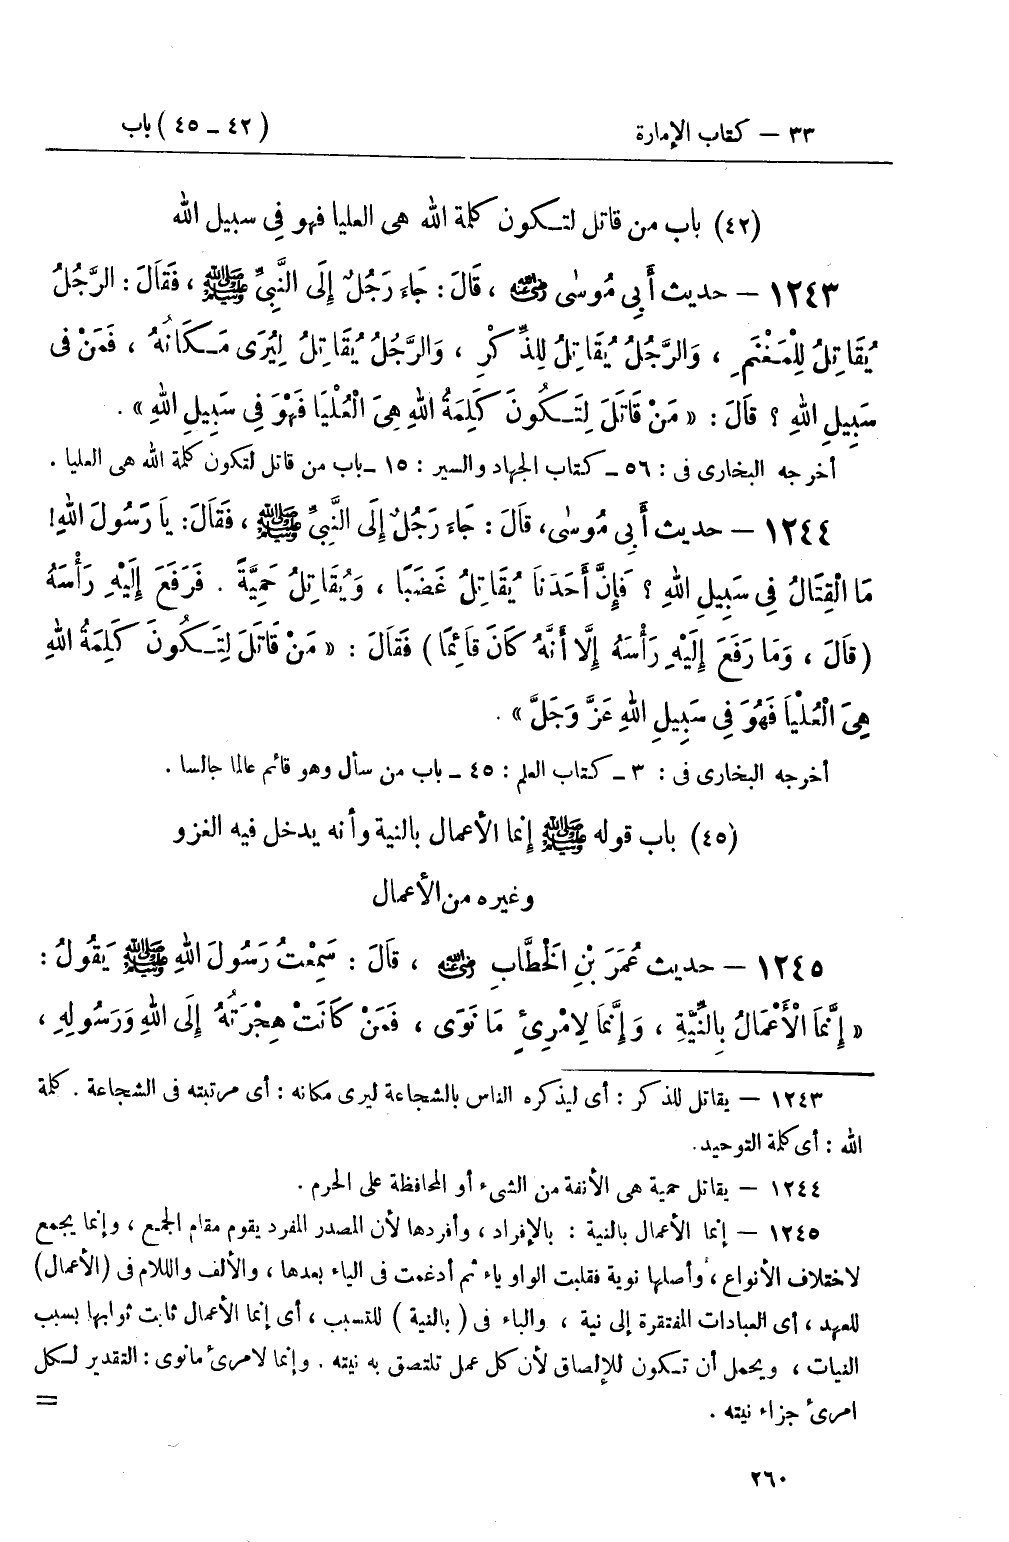 ٣٣ – كتاب الإمارة
(٤٢ – ٤٥) باب
(٤٢) باب من قاتل لتكون كلمة الله هى العليا فهو فى سبيل الله
١٢٤٣ – حديث أَبِي مُوسٰى رضي الله عنه ، قَالَ : جَاءَ رَجُلٌ إِلَى النَّبِيِّ ﷺ ، فَقَالَ : الرَّجُلُ
يُقَاتِلُ لِلْمَغْنَمِ ، وَالرَّجُلُ يُقَاتِلُ لِلذِّكْرِ ، وَالرَّجُلُ يُقَاتِلُ لِيُرَى مَكَانُهُ ، فَمَنْ فى
سَبِيلِ اللهِ ؟ قَالَ : « مَنْ قَاتَلَ لِتَكُونَ كَلِمَةُ اللهِ هِىَ الْعُلْيَا فَهْوَ فِى سَبِيلِ اللهِ » .
أخرجه البخارى فى : ٥٦ – كتاب الجهاد والسير : ١٥ – باب من قاتل لتكون كلمة الله هى العليا .
١٢٤٤ – حديث أَبِي مُوسٰى، قَالَ : جَاءَ رَجُلٌ إِلَى النَّبِيِّ ﷺ ، فَقَالَ: يَا رَسُولَ اللهِ!
مَا الْقِتَالُ فِى سَبِيلِ اللهِ ؟ فَإِنَّ أَحَدَنَا يُقَاتِلُ غَضَبًا ، وَيُقَاتِلُ حَمِيَّةً . فَرَفَعَ إِلَيْهِ رَأْسَهُ
( قَالَ ، وَمَا رَفَعَ إِلَيْهِ رَأْسَهُ إِلَّا أَنَّهُ كَانَ قَائِمًا ) فَقَالَ : « مَنْ قَاتَلَ لِتَكُونَ كَلِمَةُ اللهِ
هِىَ الْعُلْيَا فَهُوَ فِى سَبِيلِ اللهِ عَزَّ وَجَلَّ » .
أخرجه البخارى فى : ٣ – كتاب العلم : ٤٥ – باب من سأل وهو قائم عالما جالسا .
(٤٥) باب قوله ﷺ إنما الأعمال بالنية وأنه يدخل فيه الغزو
وغيره من الأعمال
١٢٤٥ – حديث عُمَرَ بْنِ الْخَطَّابِ رضي الله عنه ، قَالَ : سَمِعْتُ رَسُولَ اللهِ ﷺ يَقُولُ :
« إِنَّمَا الْأَعْمَالُ بِالنِّيَّةِ ، وَإِنَّمَا لِامْرِئٍ مَا نَوَى ، فَمَنْ كَانَتْ هِجْرَتُهُ إِلَى اللهِ وَرَسُولِهِ ،
١٢٤٣ – يقاتل للذكر : أى ليذكره الناس بالشجاعة ليرى مكانه : أى مرتبته فى الشجاعة . كلمة
الله : أى كلمة التوحيد.
١٢٤٤ – يقاتل حمية هى الأنفة من الشىء أو المحافظة على الحرم .
١٢٤٥ – إنما الأعمال بالنية : بالإفراد ، وأفردها لأن المصدر المفرد يقوم مقام الجمع ، وإنما يجمع
لاختلاف الأنواع ، وأصلها نوية فقلبت الواو ياء ثم أدغمت فى الياء بعدها ، والألف واللام فى (الأعمال)
للعهد ، أى العبادات المفتقرة إلى نية ، والباء فى ( بالنية ) للتسبب ، أى إنما الأعمال ثابت ثوابها بسبب
النيات ، ويحمل أن تكون للإلصاق لأن كل عمل تلتصق به نيته . وإنما لامرئ مانوى : التقدير لكل
امرئ جزاء نيته .
=
٢٦٠